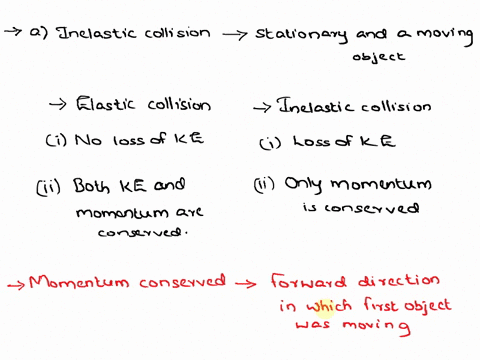 → a) Inelastic collision → Stationary and a moving
object
→ Elastic collision
(i) No loss of KE
(ii) Both KE and
momentum are
conserved.
→ Inelastic collision
(i) Loss of KE
(ii) Only momentum
is conserved
→ Momentum conserved → Forward direction
in which first object
was moving